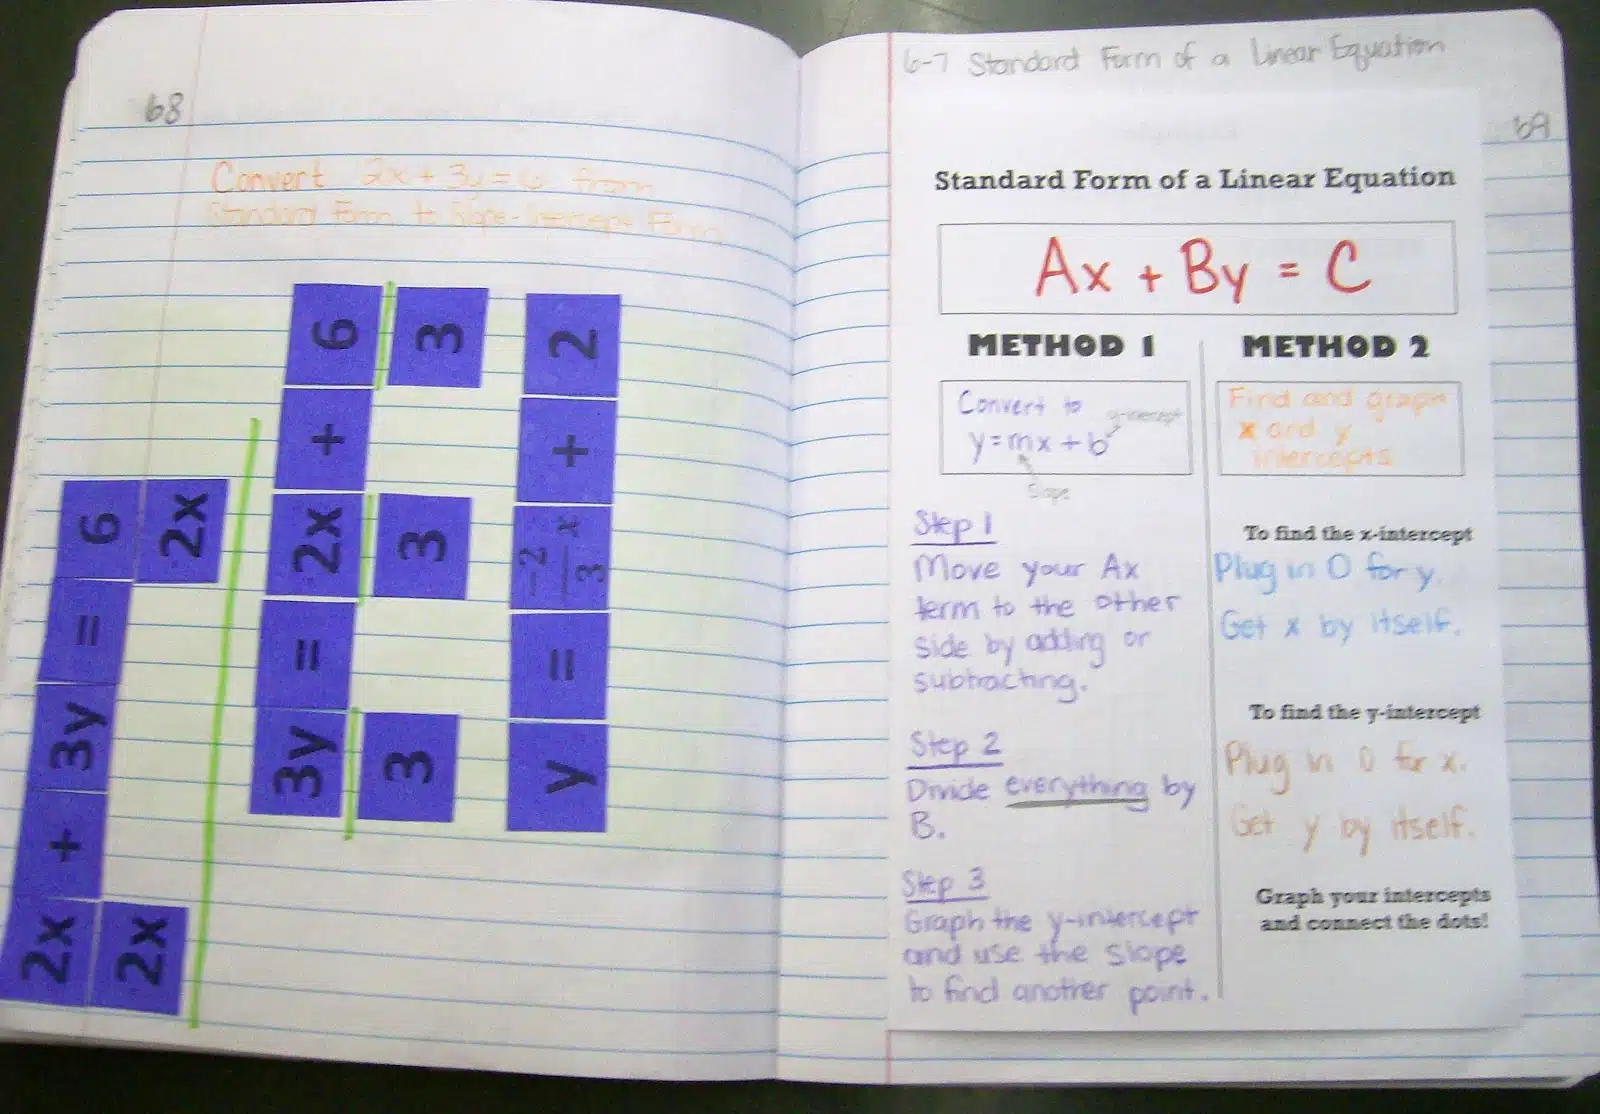 68
Convert 2x + 3y = 6 from
Standard Form to Slope-Intercept Form
2x + 3y = 6
2x 2x
3y = 2x + 6
3 3 3
y = -2/3 x + 2
6-7 Standard Form of a Linear Equation
69
Standard Form of a Linear Equation
Ax + By = C
METHOD 1
Convert to
y = mx + b
y-intercept
Slope
Step 1
Move your Ax
term to the other
side by adding or
subtracting.
Step 2
Divide everything by
B.
Step 3
Graph the y-intercept
and use the slope
to find another point.
METHOD 2
Find and graph
x and y
intercepts
To find the x-intercept
Plug in 0 for y.
Get x by itself.
To find the y-intercept
Plug in 0 for x.
Get y by itself.
Graph your intercepts
and connect the dots!